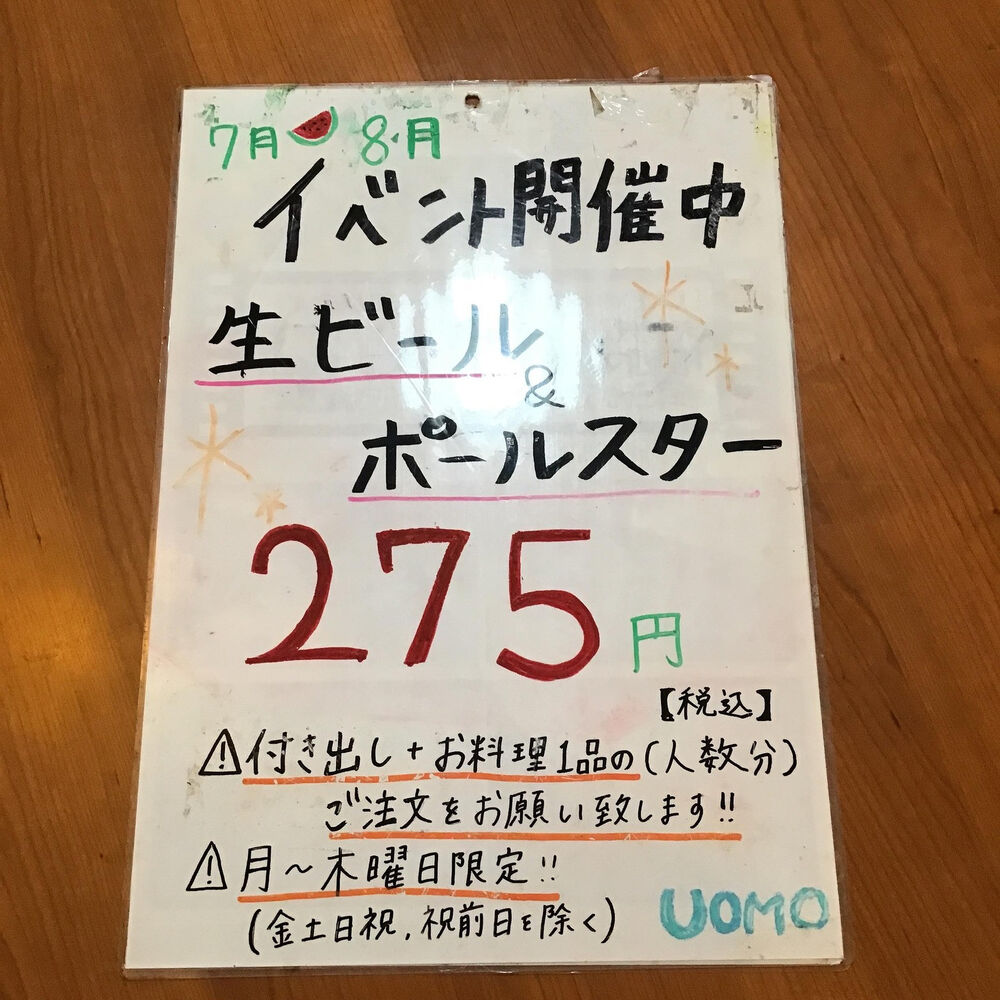 7月 8月
イベント開催中
生ビール
&
ポールスター
275円
【税込】
⚠付き出し+お料理1品の(人数分)
ご注文をお願い致します!!
⚠月〜木曜日限定!!
(金土日祝,祝前日を除く)
UOMO